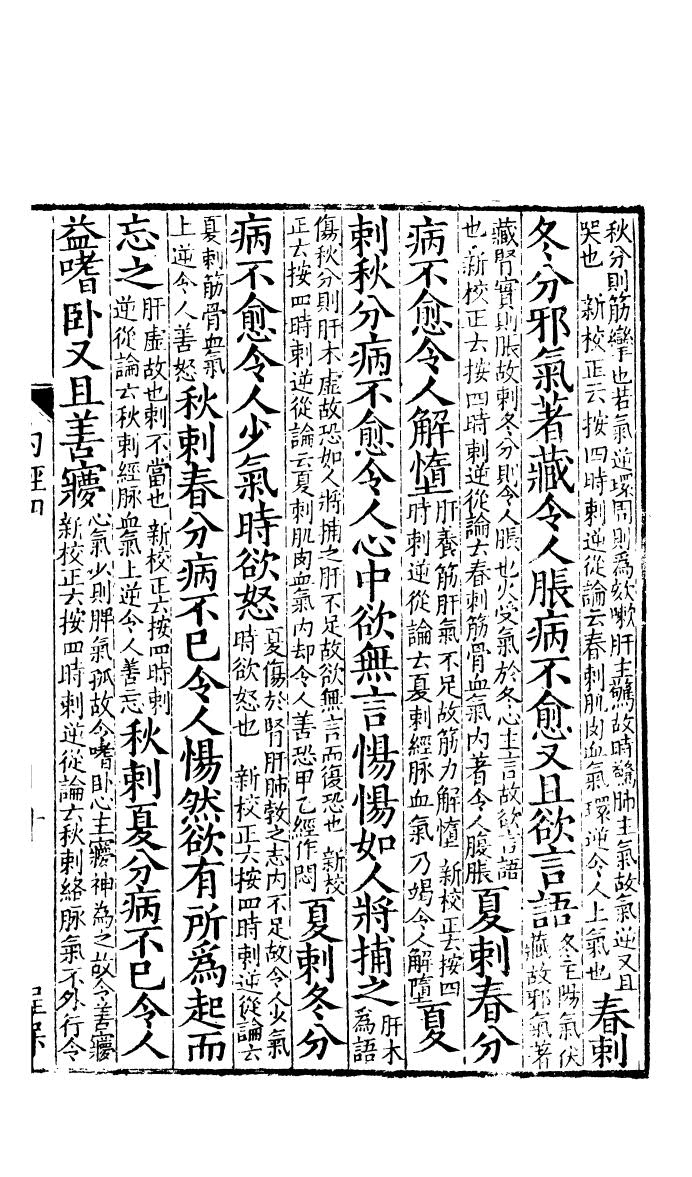 秋分則筋攣也若氣逆環周則爲欬嗽肝主驚故時驚肺主氣故氣逆又且
哭也 新校正云按四時刺逆從論云春刺肌肉血氣環逆令人上氣也
春刺
冬分邪氣著藏令人脹病不愈又且欲言語
冬主陽氣伏
藏故邪氣著
藏腎實則脹故刺冬分則令人脹也火受氣於冬心主言故欲言語
也新校正云按四時刺逆從論云春刺筋骨血氣內著令人腹脹
夏刺春分
病不愈令人解墯
肝養筋肝氣不足故筋力解墯 新校正云按四
時刺逆從論云夏刺經脉血氣乃竭令人解墮
夏
刺秋分病不愈令人心中欲無言惕惕如人將捕之
肝木
爲語
傷秋分則肝木虛故恐如人將捕之肝不足故欲無言而復恐也 新校
正云按四時刺逆從論云夏刺肌肉血氣內却令人善恐甲乙經作悶
夏刺冬分
病不愈令人少氣時欲怒
夏傷於腎肝肺敎之志內不足故令人少氣
時欲怒也 新校正云按四時刺逆從論云
夏刺筋骨血氣
上逆令人善怒
秋刺春分病不已令人惕然欲有所爲起而
忘之
肝虛故也刺不當也 新校正云按四時刺
逆從論云秋刺經脉血氣上逆令人善忘
秋刺夏分病不已令人
益嗜卧又且善㝱
心氣少則脾氣孤故令嗜卧心主㝱神為之故令善㝱
新校正云按四時刺逆從論云秋刺絡脉氣不外行令